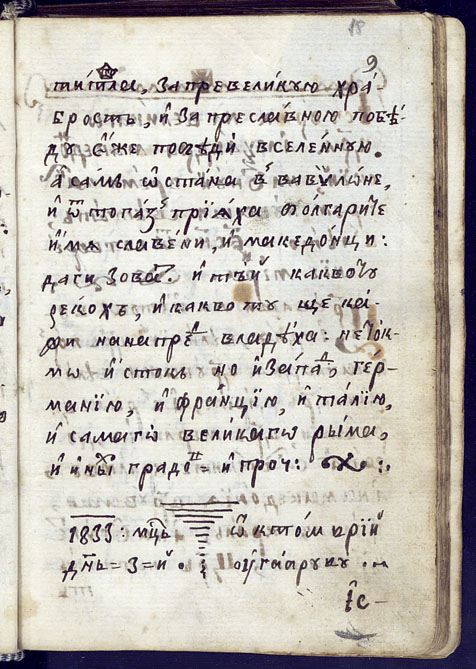 18
9
ти́тла, за превели́кую хра́-
брость, и҆ за пресла́вною побѣ́-
ду є҆́же побѣди̇̀ вселе́нную.
А҆ самъ ѡ҆ста́на в̾ вавѷлѡ́не,
и҆ ѿтога́з̾ прїѧ́ха бо́лгарїте
и҆́мѧ славе́ни, и҆ македо́нци:
да ги зова́т. и҆ ті́и какво́ту
реко́хъ, и҆ какво́ту ще ка́-
жи нанапре́д владѣ́ха: не то́к-
мѡ и҆сто́къ но и҆ за́пад, гер-
ма́нїю, и҆ фра́нцїю, и҆та́лїю,
и҆ самагѡ̀ вели́кагѡ ры́ма,
и҆ и҆ны́ градо́в = и҆ проч:
1833: мцъ ѡ҆кто́мврїй
днь = 3 = й
і҆с-